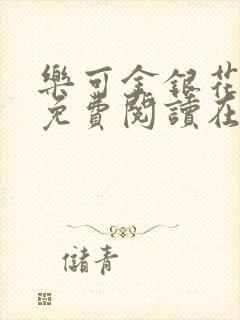 樂可金銀花
免費閱讀在
儲青